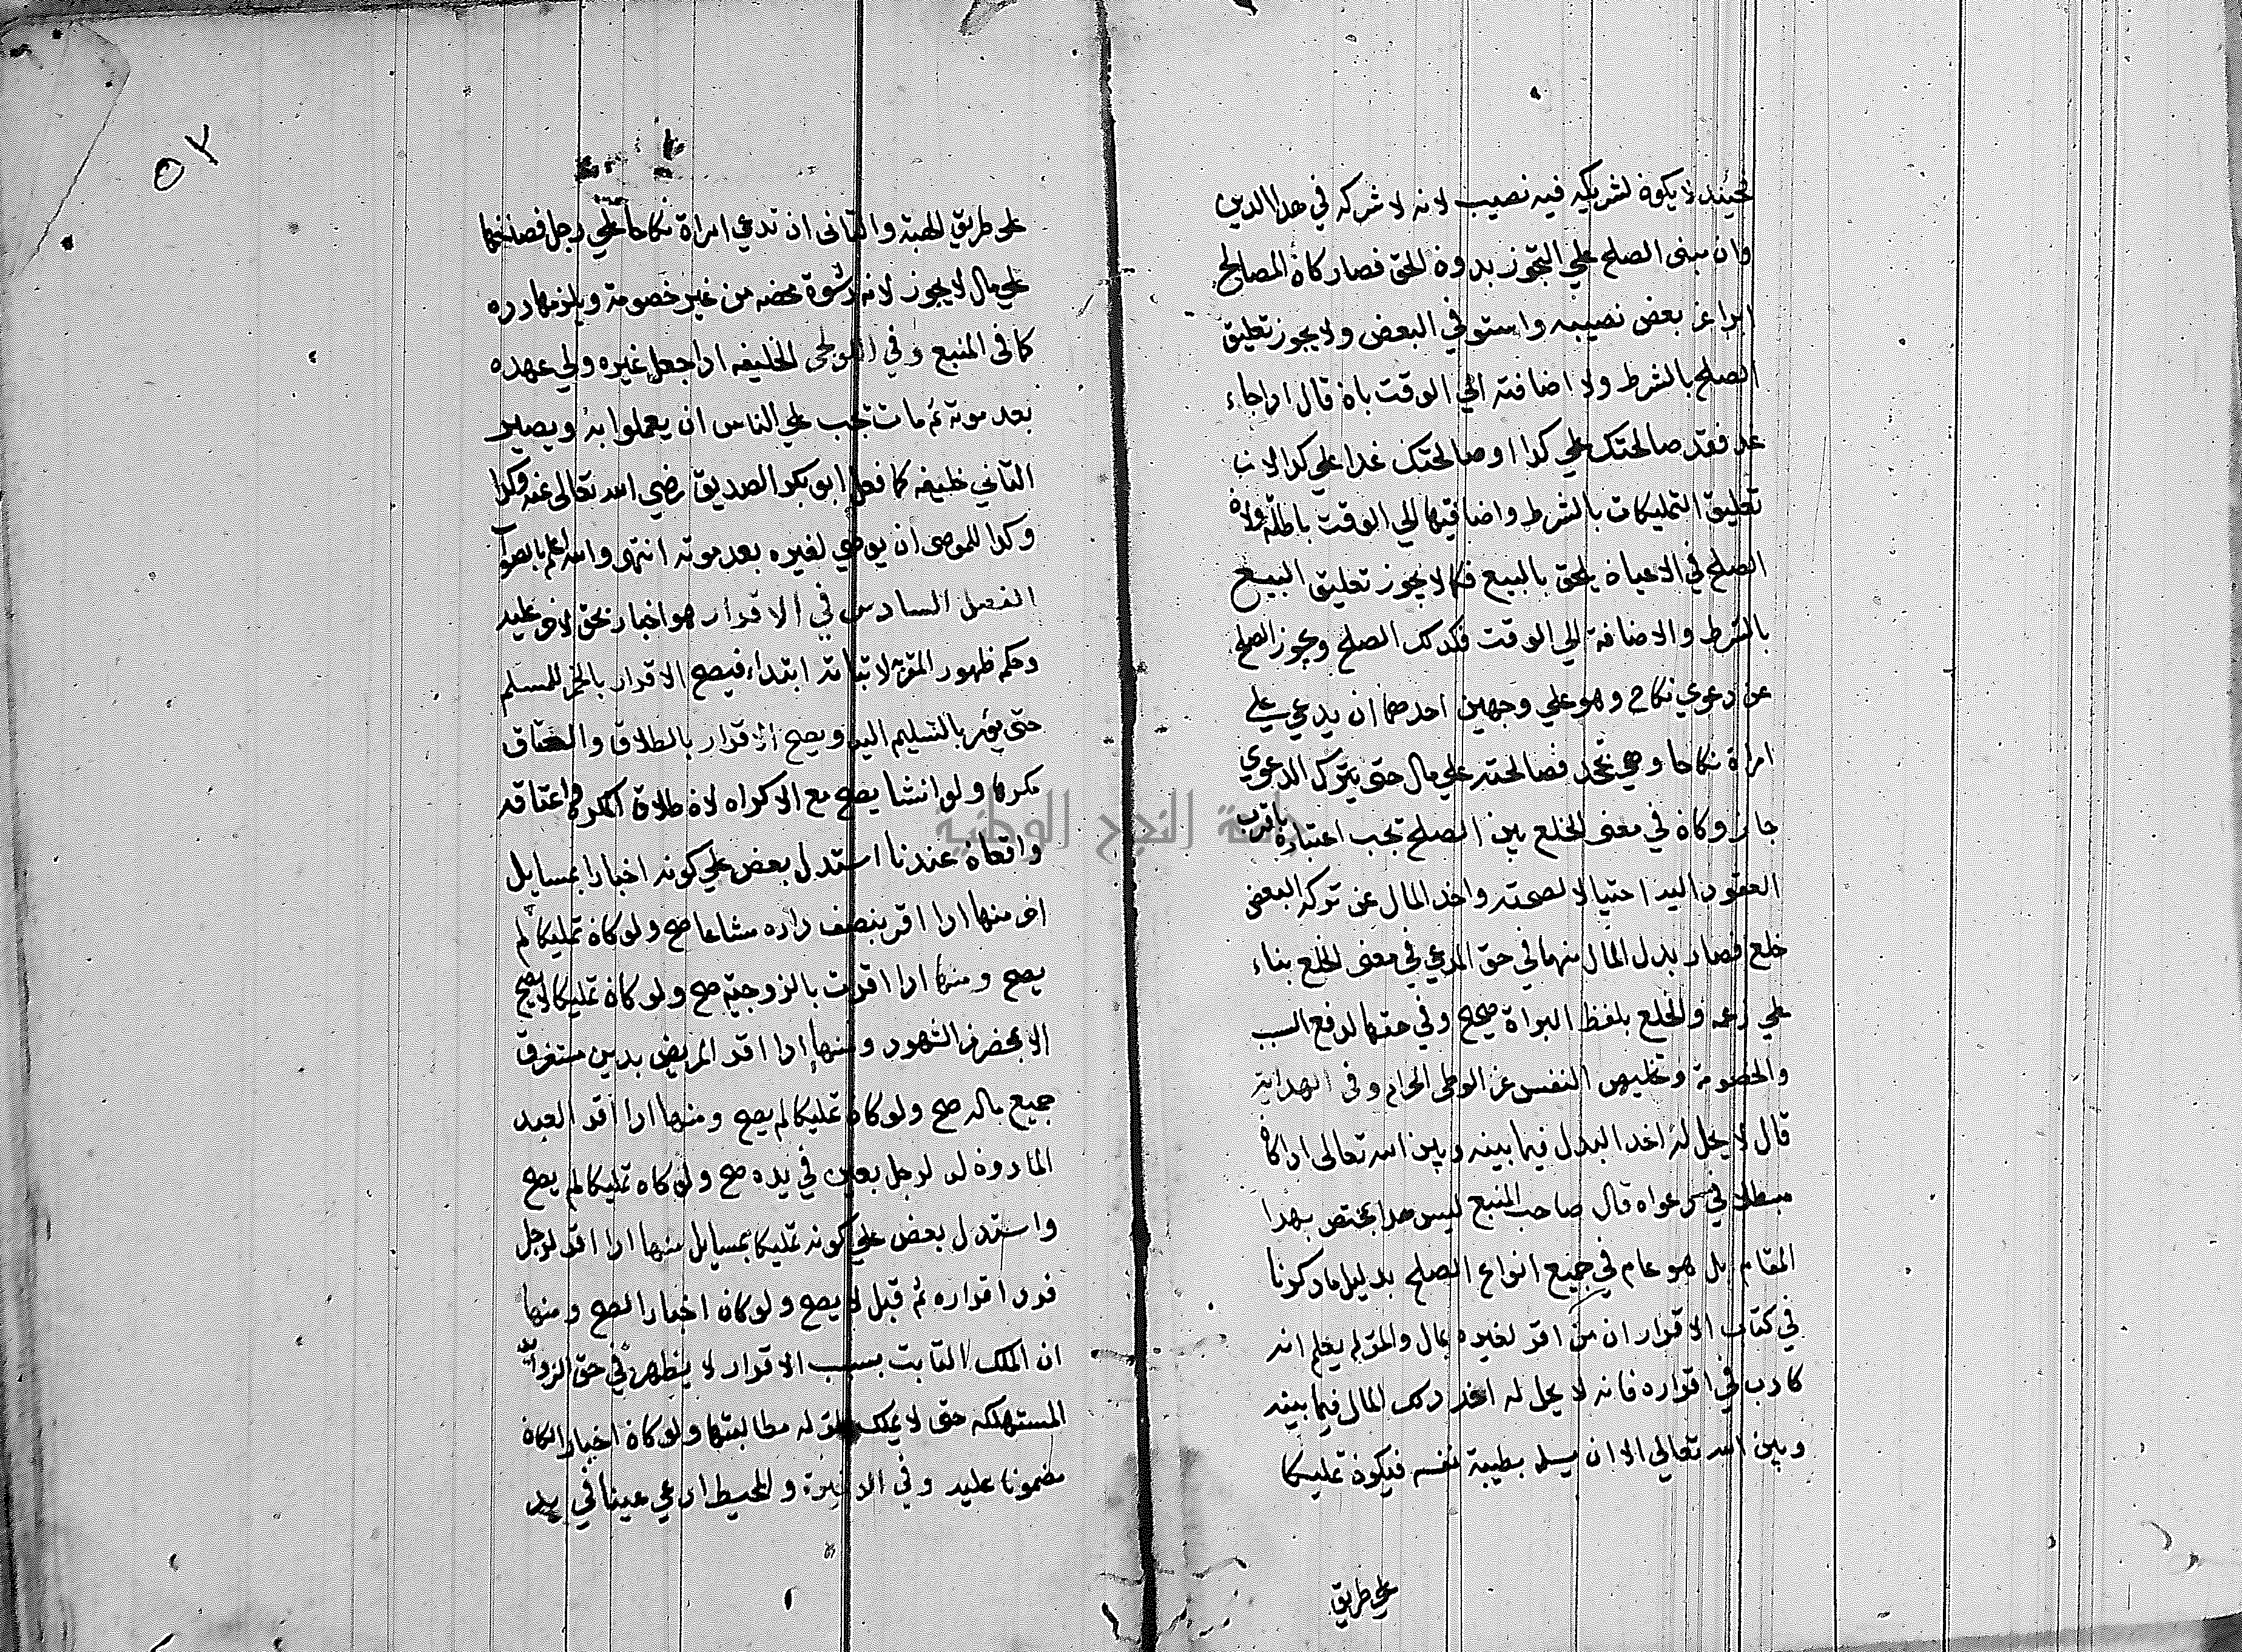 فحينئذ لا يكون لشريكه فيه نصيب لانه لا شركه في هدا الدين
وان مبنى الصلح علي التجوز بدون الحق فصار كان المصالح
ابرا عن بعض نصيبه واستوفي البعض ولا يجوز تعليق
الصلح بالشرط ولا اضافته الي الوقت بان قال ادا جاء
غد فقد صالحتك علي كدا او صالحتك غدا علي كدا لان
تعليق التمليكات بالشرط واضافتها الي الوقت باطلة ولان
الصلح في الاعيان يلحق بالبيع فكما لا يجوز تعليق البيع
بالشرط والاضافة الي الوقت فكدلك الصلح ويجوز الصلح
عن دعوي نكاح وهو علي وجهين احدهما ان يدعي علي
امراة نكاحا وهي تجحد فصالحته علي مال حتى يترك الدعوي
جاز وكان في معنى الخلع بين الصلح تجب اعتباره باقرب
العقود اليه احتيالا لصحته واخد المال عن تركه البعض
خلع فصار بدل المال منهما في حق المدعي في معنى الخلع بناء
علي زعمه والخلع بلفظ البراة صحيح وفي حقها لدفع السبب
والخصومة وتخليص النفس عن الوطي الحرام وفي الهداية
قال لا يحل له اخد البدل فيما بينه وبين الله تعالى ادا كان
مبطلا في دعواه قال صاحب المنبع ليس هدا مختص بهدا
المقام بل هو عام في جميع انواع الصلح بدليل ما دكرنا
في كتاب الاقرار ان من اقر لغيره بمال والمقر له يعلم انه
كادب في اقراره فانه لا يحل له اخد دلك المال فيما بينه
وبين الله تعالي الا ان يسلمه بطيبة نفسه فيكون تمليكا
علي طريق
٥٢
علي طريق الهبة والتاني ان تدعي امراة نكاحا علي رجل فصالحها
علي مال لا يجوز لانه رشوة محضه من غير خصومة ويلزمها رده
كدا في المنبع وفي الخليفه ادا جعل غيره ولي عهده
بعد موته ثم مات تجب علي الناس ان يعملوا به ويصير
التاني خليفه كما فعل ابو بكر الصديق رضي الله تعالى عنه وكدا
وكدا للموصى ان يوصي لغيره بعد موته انتهى والله اعلم بالصواب
الفصل السادس في الاقرار هو اخبار بحق لاخر عليه
وحكمه ظهور المقر به لا اثباته ابتداء فيصح الاقرار بالخمر للمسلم
حتى يؤمر بالتسليم اليه ويصح الاقرار بالطلاق والعتاق
مكرها ولو انشا يصح مع الاكراه لان طلاق المكره واعتاقه
واقعان عندنا استدل بعض علي كونه اخبارا بمسايل
اخر منها ادا اقر بنصف داره مشاعا صح ولو كان تمليكا لم
يصح ومنها ادا اقرت بالزوجية صح ولو كان تمليكا لا يصح
الا بمحضر من الشهود ومنها ادا اقر المريض بدين مستغرق
جميع ماله صح ولو كان تمليكا لم يصح ومنها ادا اقر العبد
المادون له لرجل بعين في يده صح ولو كان تمليكا لم يصح
واستدل بعض علي كونه تمليكا بمسايل منها ادا اقر لرجل
فرد اقراره ثم قبل لا يصح ولو كان اخبارا لصح ومنها
ان الملك التابت بسبب الاقرار لا يظهر في حق الزوائد
المستهلكه حتى لا يملك المقر له مطالبتها ولو كان اخبارا لكان
مضمونا عليه وفي الدخيرة والمحيط ادعي عينا في يد